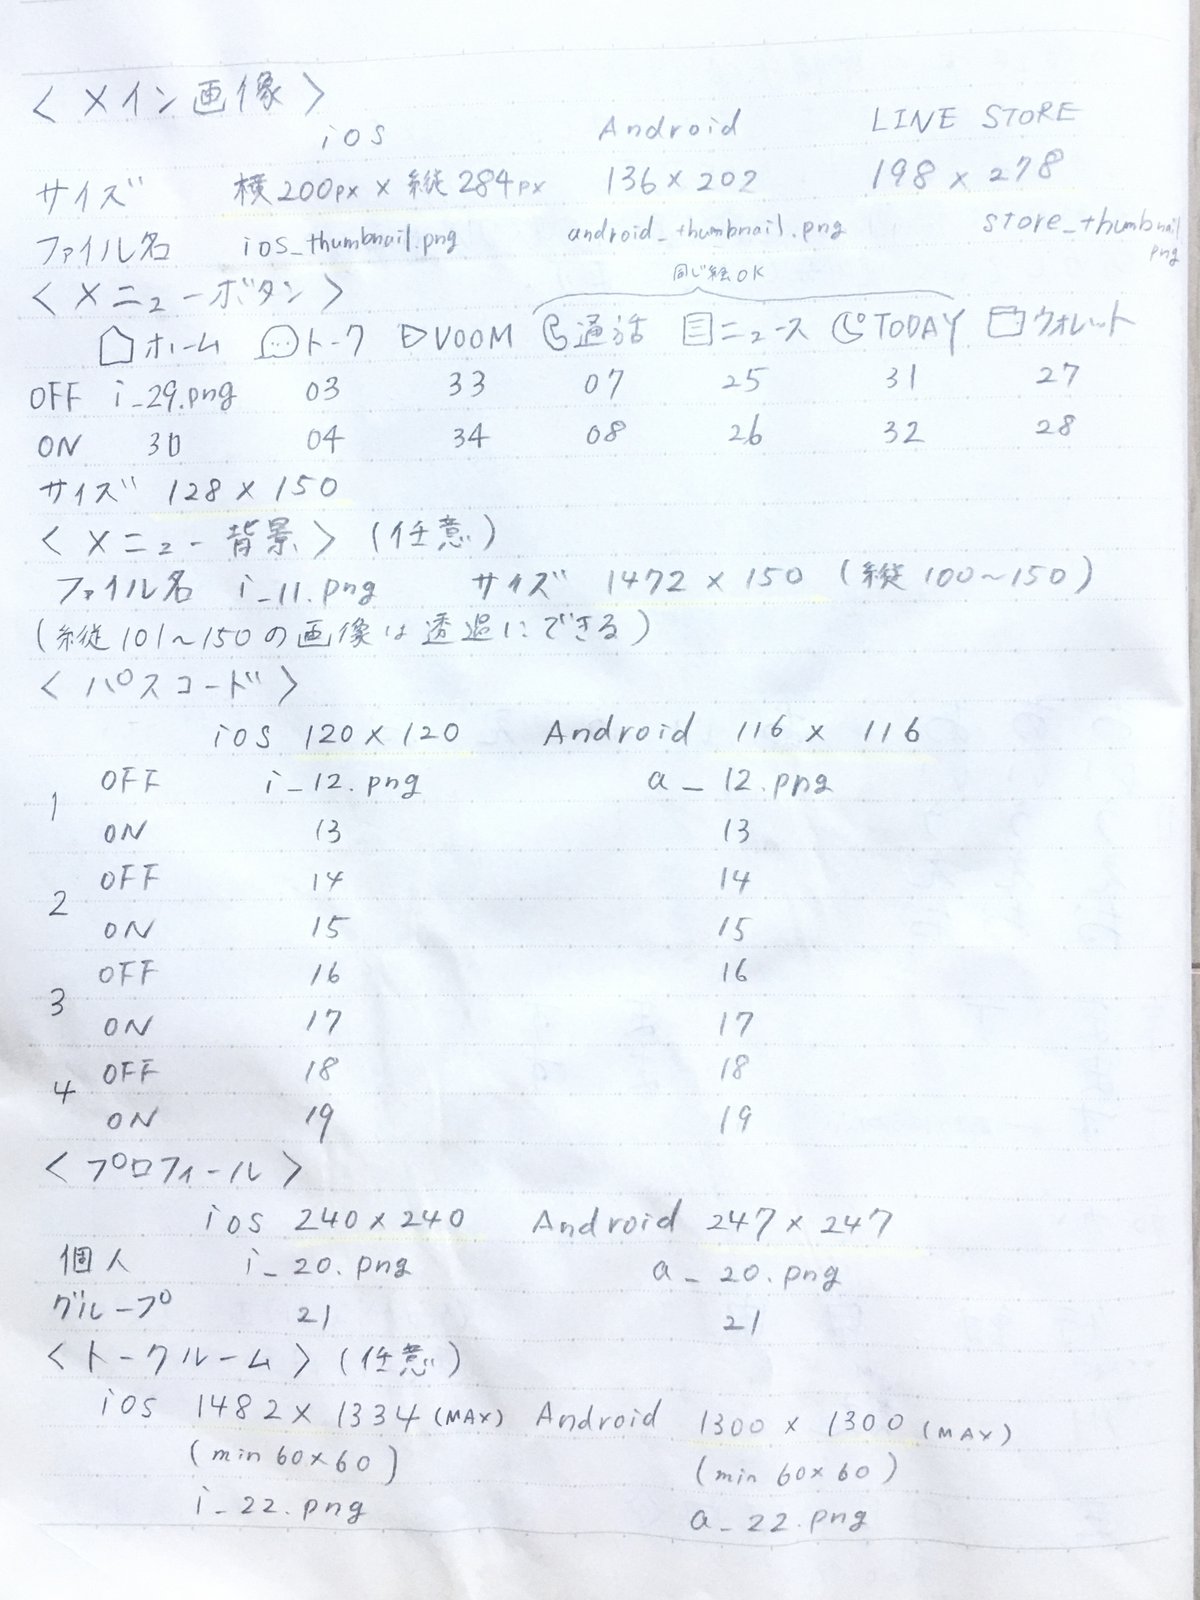 〈メイン画像〉
iOS Android LINE STORE
サイズ 横200px × 縦284px 136×202 198×278
ファイル名 ios_thumbnail.png android_thumbnail.png store_thumbnail.png
〈メニューボタン〉 同じ絵OK
ホーム トーク VOOM 通話 ニュース TODAY ウォレット
OFF i_29.png 03 33 07 25 31 27
ON 30 04 34 08 26 32 28
サイズ 128×150
〈メニュー背景〉(任意)
ファイル名 i_11.png サイズ 1472×150 (縦100~150)
(縦101~150の画像は透過にできる)
〈パスコード〉
iOS 120×120 Android 116×116
1 OFF i_12.png a_12.png
ON 13 13
2 OFF 14 14
ON 15 15
3 OFF 16 16
ON 17 17
4 OFF 18 18
ON 19 19
〈プロフィール〉
iOS 240×240 Android 247×247
個人 i_20.png a_20.png
グループ 21 21
〈トークルーム〉(任意)
iOS 1482×1334(MAX) Android 1300×1300(MAX)
(min 60×60) (min 60×60)
i_22.png a_22.png